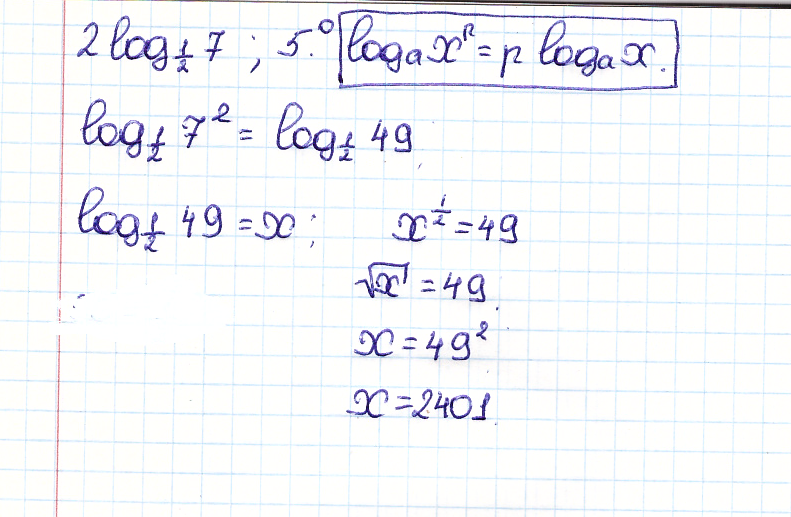 2 log_{1/2} 7 ; 5.⁰ logₐ xᵖ = p logₐ x.
log_{1/2} 7² = log_{1/2} 49
log_{1/2} 49 = x ; x^{1/2} = 49
√x = 49
x = 49²
x = 2401